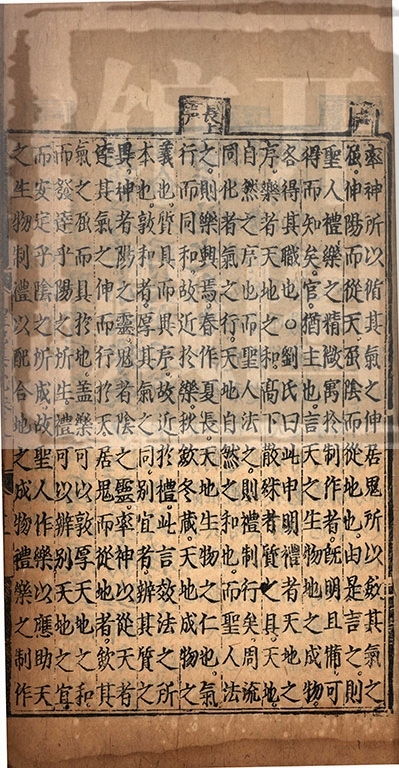 長上
率神所以循其氣之伸居鬼所以斂其氣之
屈伸陽而從天屈陰而從地也由是言之則
聖人禮樂之精微寓於制作者既明且備可
得而知矣官猶主也言天之生物地之成物
各得其職也○劉氏曰此申明禮者天地之
序樂者天地之和高下散殊者質之具天地
自然之序也而聖人法之則禮制行矣周流
同化者氣之行天地自然之和也而聖人法
之則樂興焉春作夏長天地生物之仁也氣
行而同和故近於樂秋斂冬藏天地成物之
義也質具而異序故近於禮此言效法之所
本也敦和者厚其氣之同別宜者辨其質之
異神者陽之靈鬼者陰之靈率神以從天者
達其氣之伸而行於天居鬼而從地者斂其
氣之屈而具於地蓋樂可以敦厚天地之和
而發達乎陽之所生禮可以辨別天地之宜
而安定乎陰之所成故聖人作樂以應助天
之生物制禮以配合地之成物禮樂之制作